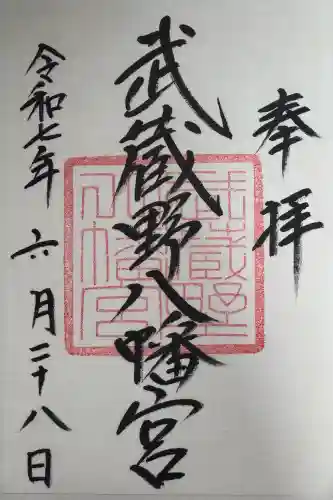 奉拝
武蔵野八幡宮
武蔵野
八幡宮
令和七年六月二十八日